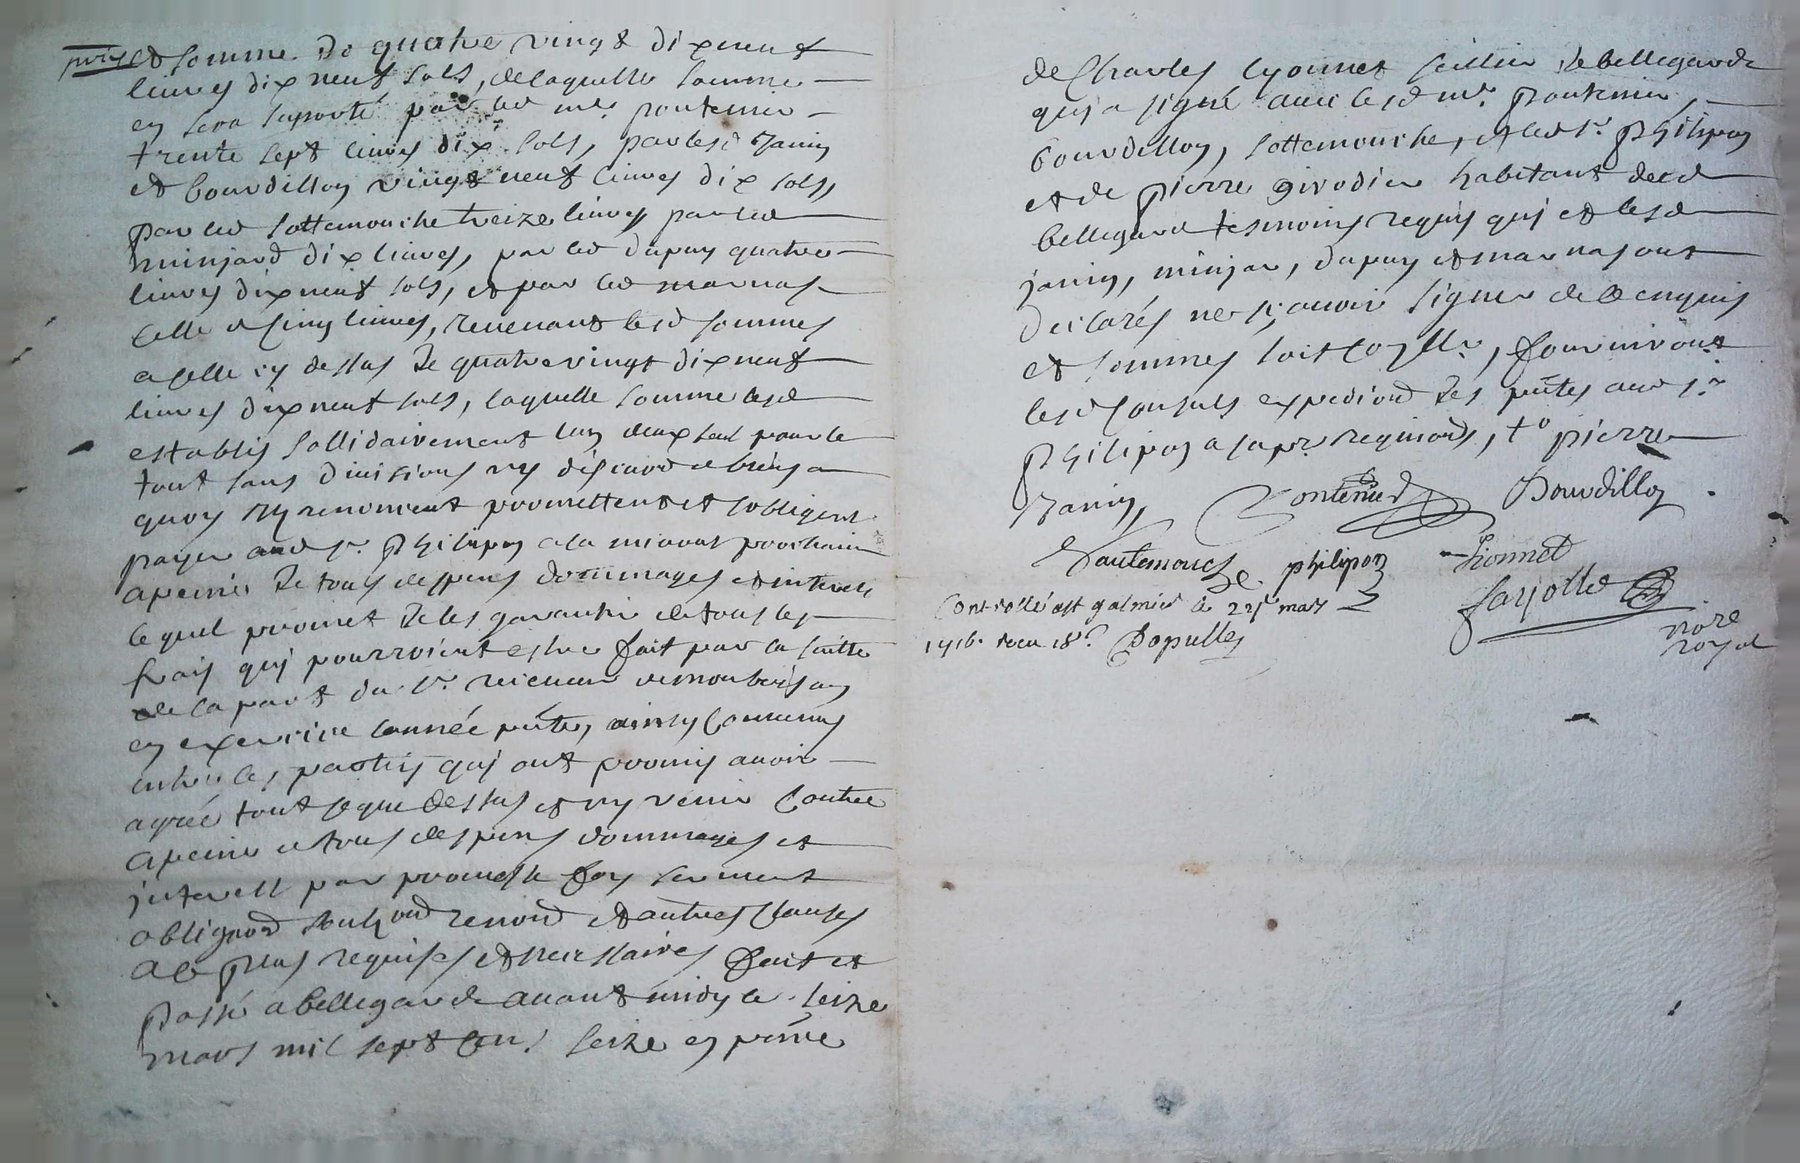 prix et somme de quatre vingt dix neuf
livres dix neuf sols, de laquelle somme
en sera suporté par led me pontenier
trente sept livres dix sols, par lesd Janin
et bourdillon vingt neuf livres dix sols,
par led sottemouche treize livres par led
minjard dix livres, par led dupuy quatre
livres dix neuf sols, et par led marnas
celle de cinq livres, revenant lesd sommes
a celle cy dessus de quatre vingt dix neuf
livres dix neuf sols, laquelle somme lesd
establis sollidairement lun deux seul pour le
tout sans divisions ny discurd
quoy ils renoncent promettent et sobligent
payer aud sr. philipon a la miaoust prochain
a peine de tous despens dommages et interets
lequel promet de les garantir de tous les
frais qui pourroient estre fait par la suitte
de la part du sr. receveur de monbrison
en exercice lannée pnte, ainsy convenus
entre les parties qui ont promis avoir
agréé tout ce que dessus et ny venir contre
a peine de tous despens dommages et
interest par promesse foy serment
obligaond soubzond renond et autres clauses
a ce plus requises et necessaires fait et
passé a bellegarde avant midy le seize
mars mil sept cens seize en pnce
de Charles Lyonnet sellier de bellegarde
qui a signé avec lesd me. pontenier,
bourdillon, sottemouche, et led sr. philipon
et de pierre girodier habitant dud
bellegard tesmoins requis qui et lesd
janin, minjar, dupuy et marnas ont
declarés ne sçavoir signer de ce enquis
et sommes soit coner, fourniront
lesd consuls expediond des pntes aud sr
philipon a sa pre requiond, to pierre
Janin,
Pontenier Bourdillon.
Sautemouche philipon Lionnet
Controllé a st galmier le 22e mars
1716. receu 18s. Dopulles
Farjollet
nore
royal